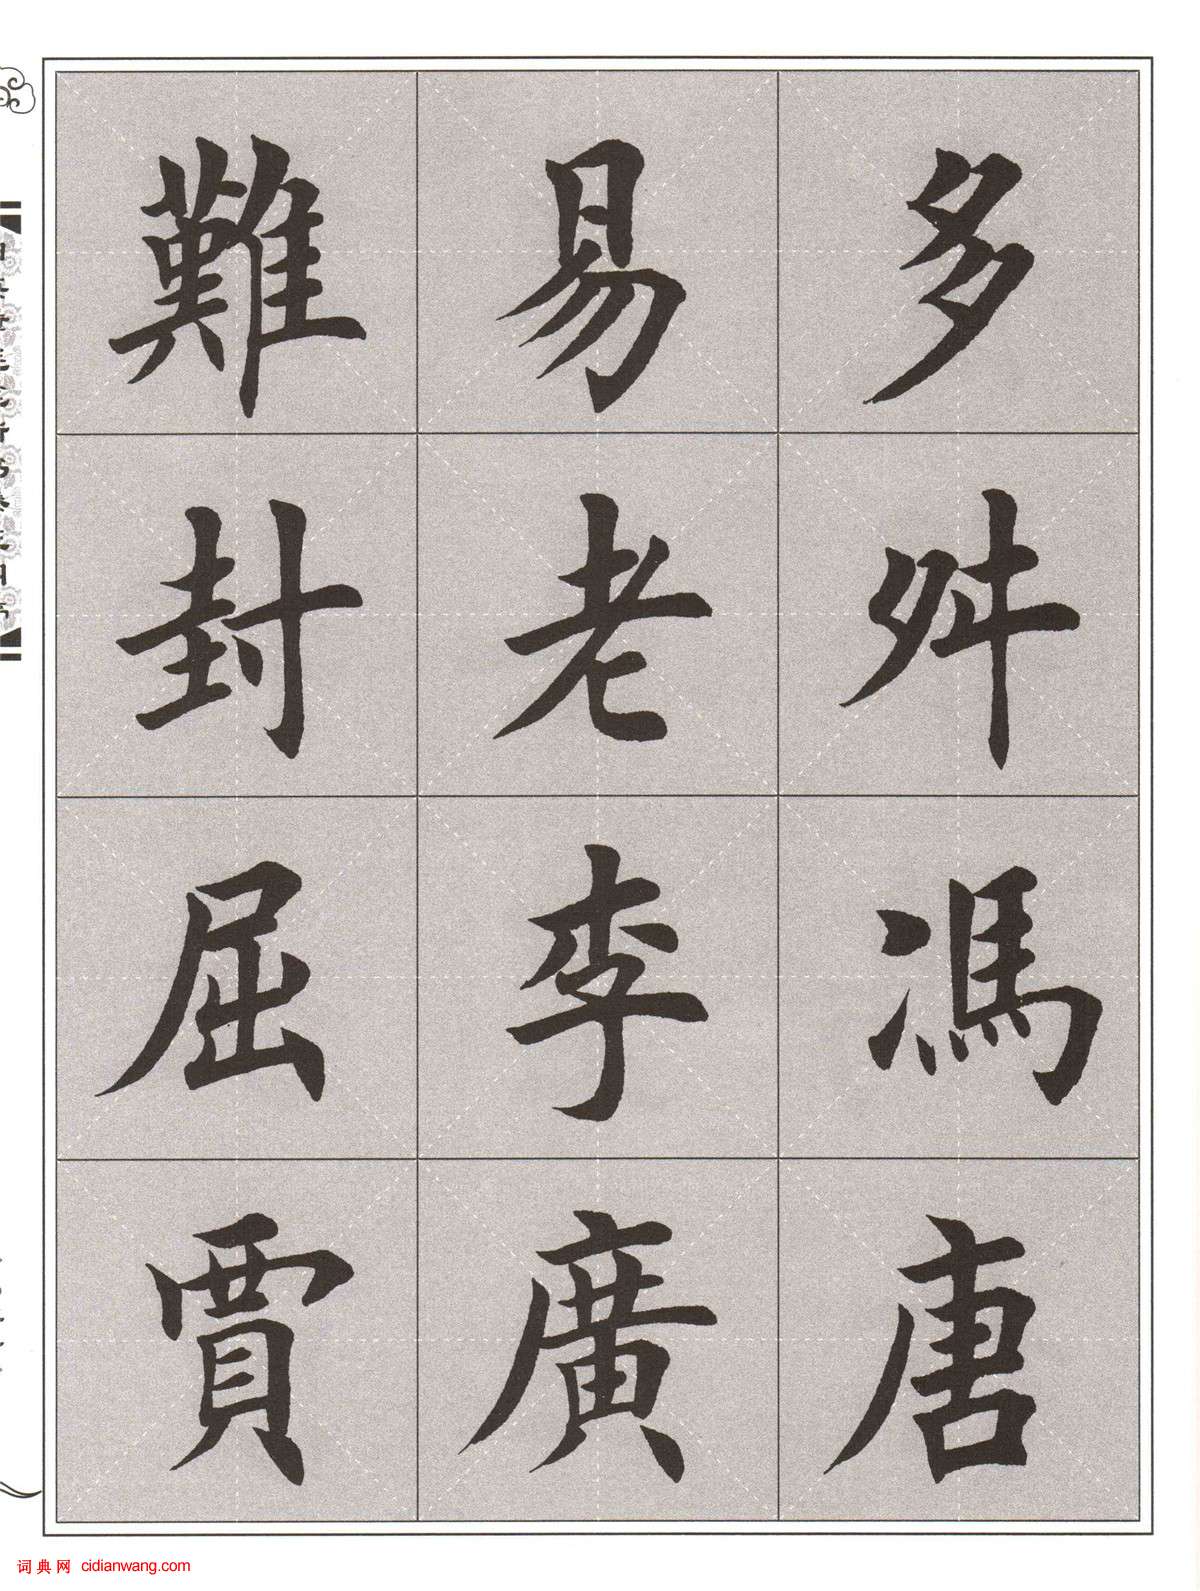 多舛馮唐
易老李廣
難封屈賈
词典网 cidianwang.com